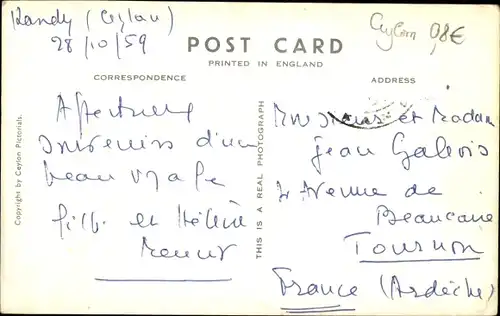 Kandy (Ceylan)
28/10/59
Ceylan 0,8€
POST CARD
PRINTED IN ENGLAND
CORRESPONDENCE
ADDRESS
Affectueux
souvenirs d'un
beau voyage
et Hélène
Monsieur et Madame
Jean
Avenue de
Beaucaire
Tournon
France (Ardèche)
Copyright by Ceylon Pictorials.
THIS IS A REAL PHOTOGRAPH